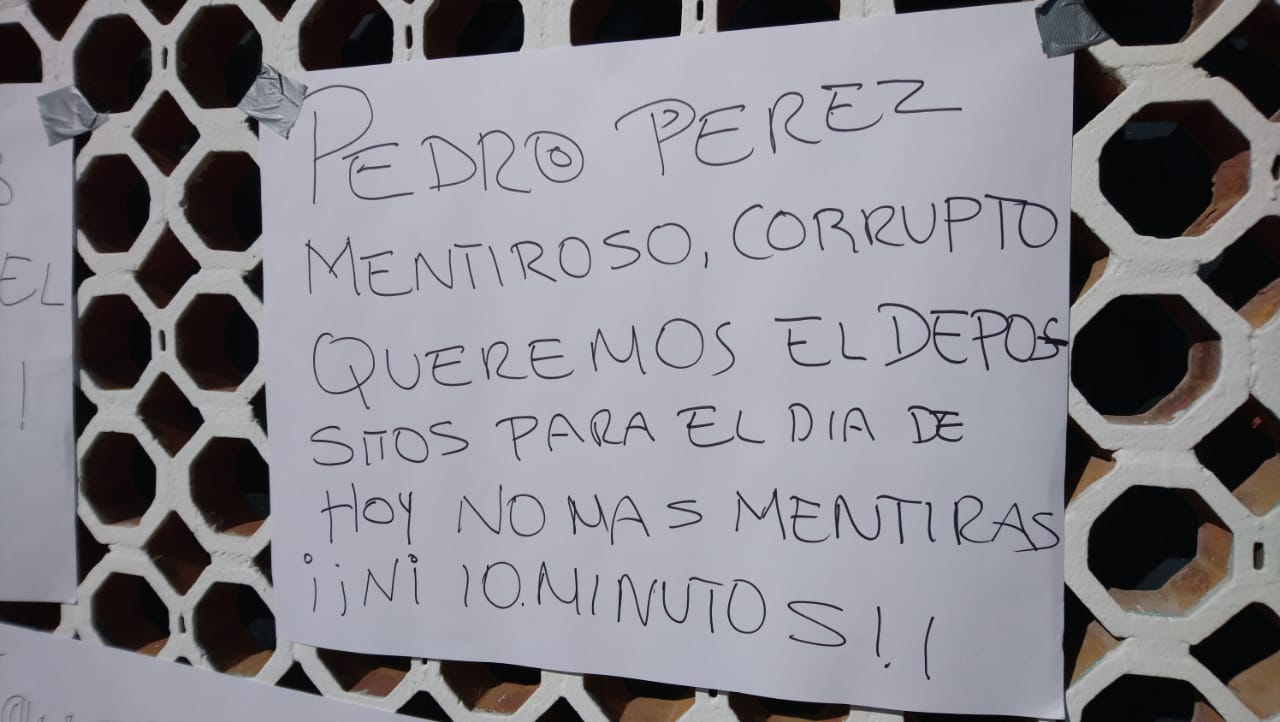 PEDRO PEREZ
MENTIROSO, CORRUPTO
QUEREMOS EL DEPOS
SITOS PARA EL DIA DE
HOY NO MAS MENTIRAS
¡¡Ni 10.MINUTOS!!
EL
!